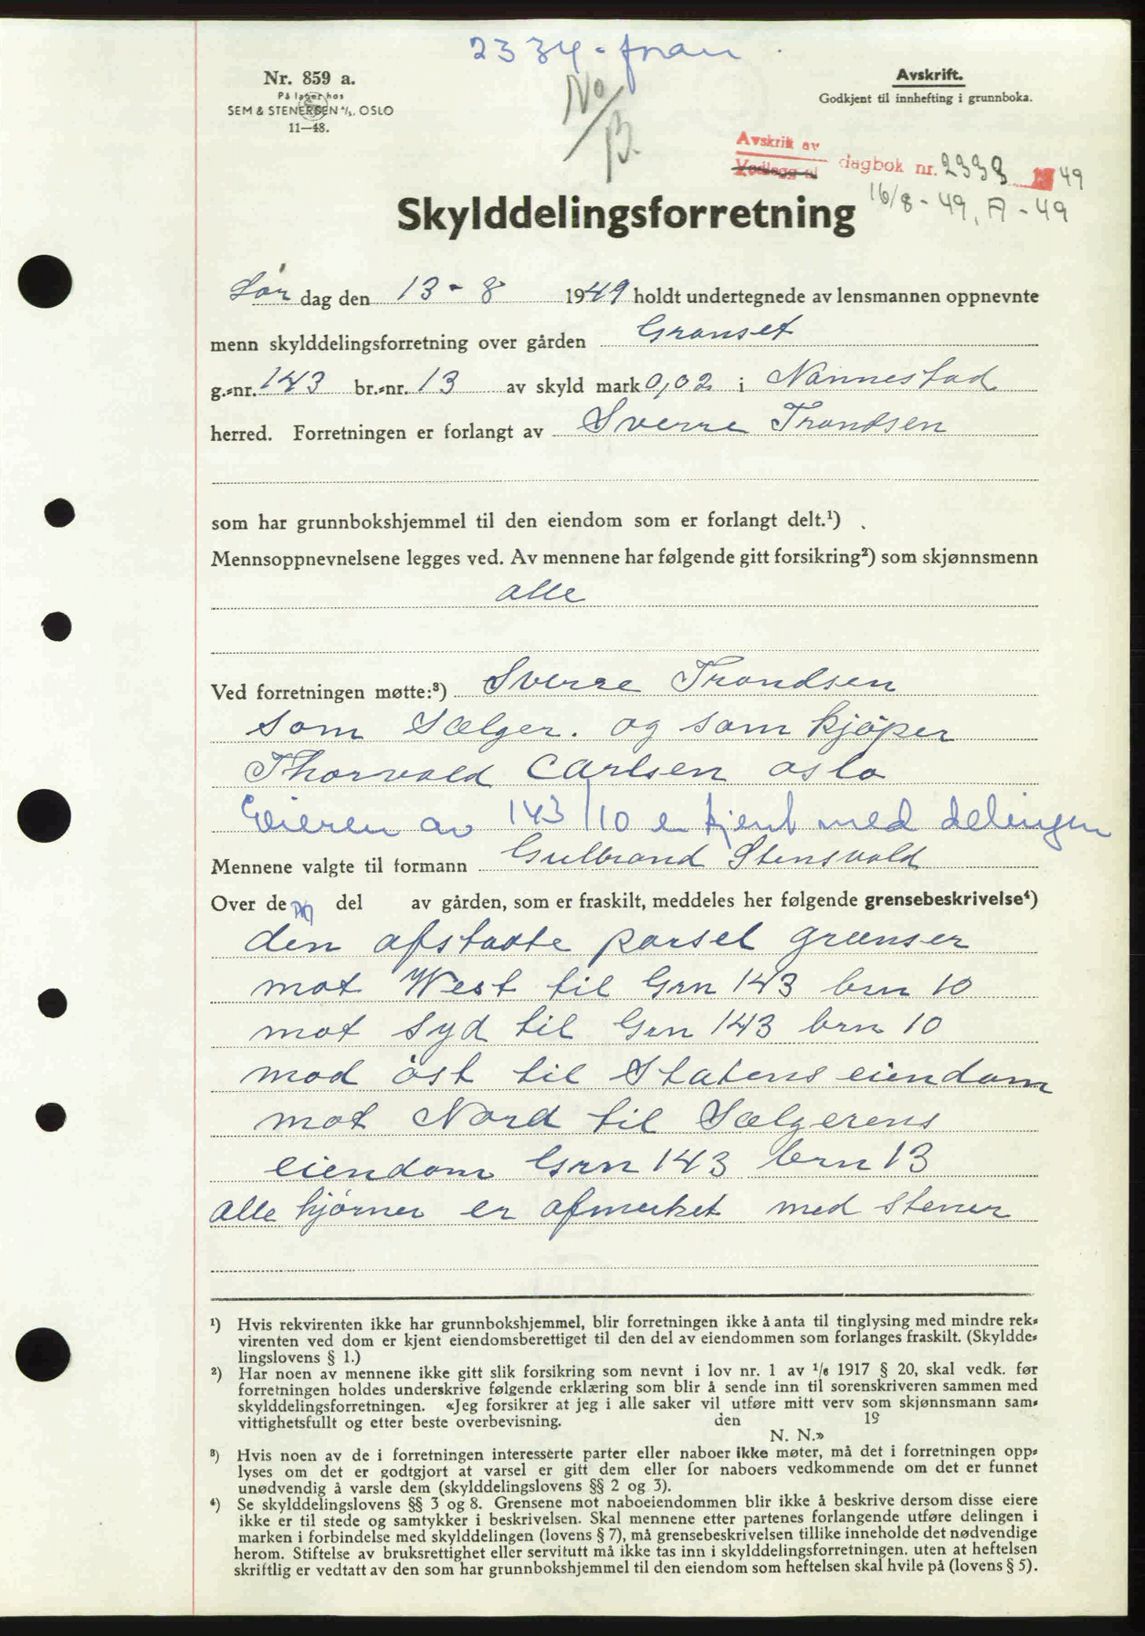 2334 - fran
Nr. 859 a.
På lager hos
SEM & STENERSEN A/S. OSLO
11—48.
No/B.
Avskrift.
Godkjent til innhefting i grunnboka.
Avskrift av
Vedlegg til
dagbok nr. 2333 1949
16/8 - 49, A - 49
Skylddelingsforretning
Lør dag den 13 - 8 1949 holdt undertegnede av lensmannen oppnevnte
menn skylddelingsforretning over gården Granset
g.-nr. 143 br.-nr. 13 av skyld mark 0,02 i Nannestad
herred. Forretningen er forlangt av Sverre Trondsen
som har grunnbokshjemmel til den eiendom som er forlangt delt.¹)
Mennsoppnevnelsene legges ved. Av mennene har følgende gitt forsikring²) som skjønnsmenn
alle
Ved forretningen møtte:³) Sverre Trondsen
som Sælger. og som kjøper
Thorvald Carlsen Oslo
Eieren av 143/10 er kjent med delingen
Mennene valgte til formann Gulbrand Stensvold
Over den del av gården, som er fraskilt, meddeles her følgende grensebeskrivelse⁴)
den afstaate parsel grænser
mot West til Grn 143 brn 10
mot Syd til Grn 143 brn 10
mod øst til Statens eiendom
mot Nord til Sælgerens
eiendom Grn 143 brn 13
alle hjørner er afmerket med stener
¹) Hvis rekvirenten ikke har grunnbokshjemmel, blir forretningen ikke å anta til tinglysing med mindre rek-
virenten ved dom er kjent eiendomsberettiget til den del av eiendommen som forlanges fraskilt. (Skyldde-
lingslovens § 1.)
²) Har noen av mennene ikke gitt slik forsikring som nevnt i lov nr. 1 av 1/6 1917 § 20, skal vedk. før
forretningen holdes underskrive følgende erklæring som blir å sende inn til sorenskriveren sammen med
skylddelingsforretningen. «Jeg forsikrer at jeg i alle saker vil utføre mitt verv som skjønnsmann sam-
vittighetsfullt og etter beste overbevisning. den 19
N. N.»
³) Hvis noen av de i forretningen interesserte parter eller naboer ikke møter, må det i forretningen opp-
lyses om det er godtgjort at varsel er gitt dem eller for naboers vedkommende om det er funnet
unødvendig å varsle dem (skylddelingslovens §§ 2 og 3).
⁴) Se skylddelingslovens §§ 3 og 8. Grensene mot naboeiendommen blir ikke å beskrive dersom disse eiere
ikke er til stede og samtykker i beskrivelsen. Skal mennene etter partenes forlangende utføre delingen i
marken i forbindelse med skylddelingen (lovens § 7), må grensebeskrivelsen tillike inneholde det nødvendige
herom. Stiftelse av bruksrettighet eller servitutt må ikke tas inn i skylddelingsforretningen. uten at heftelsen
skriftlig er vedtatt av den som har grunnbokshjemmel til den eiendom som heftelsen skal hvile på (lovens § 5).